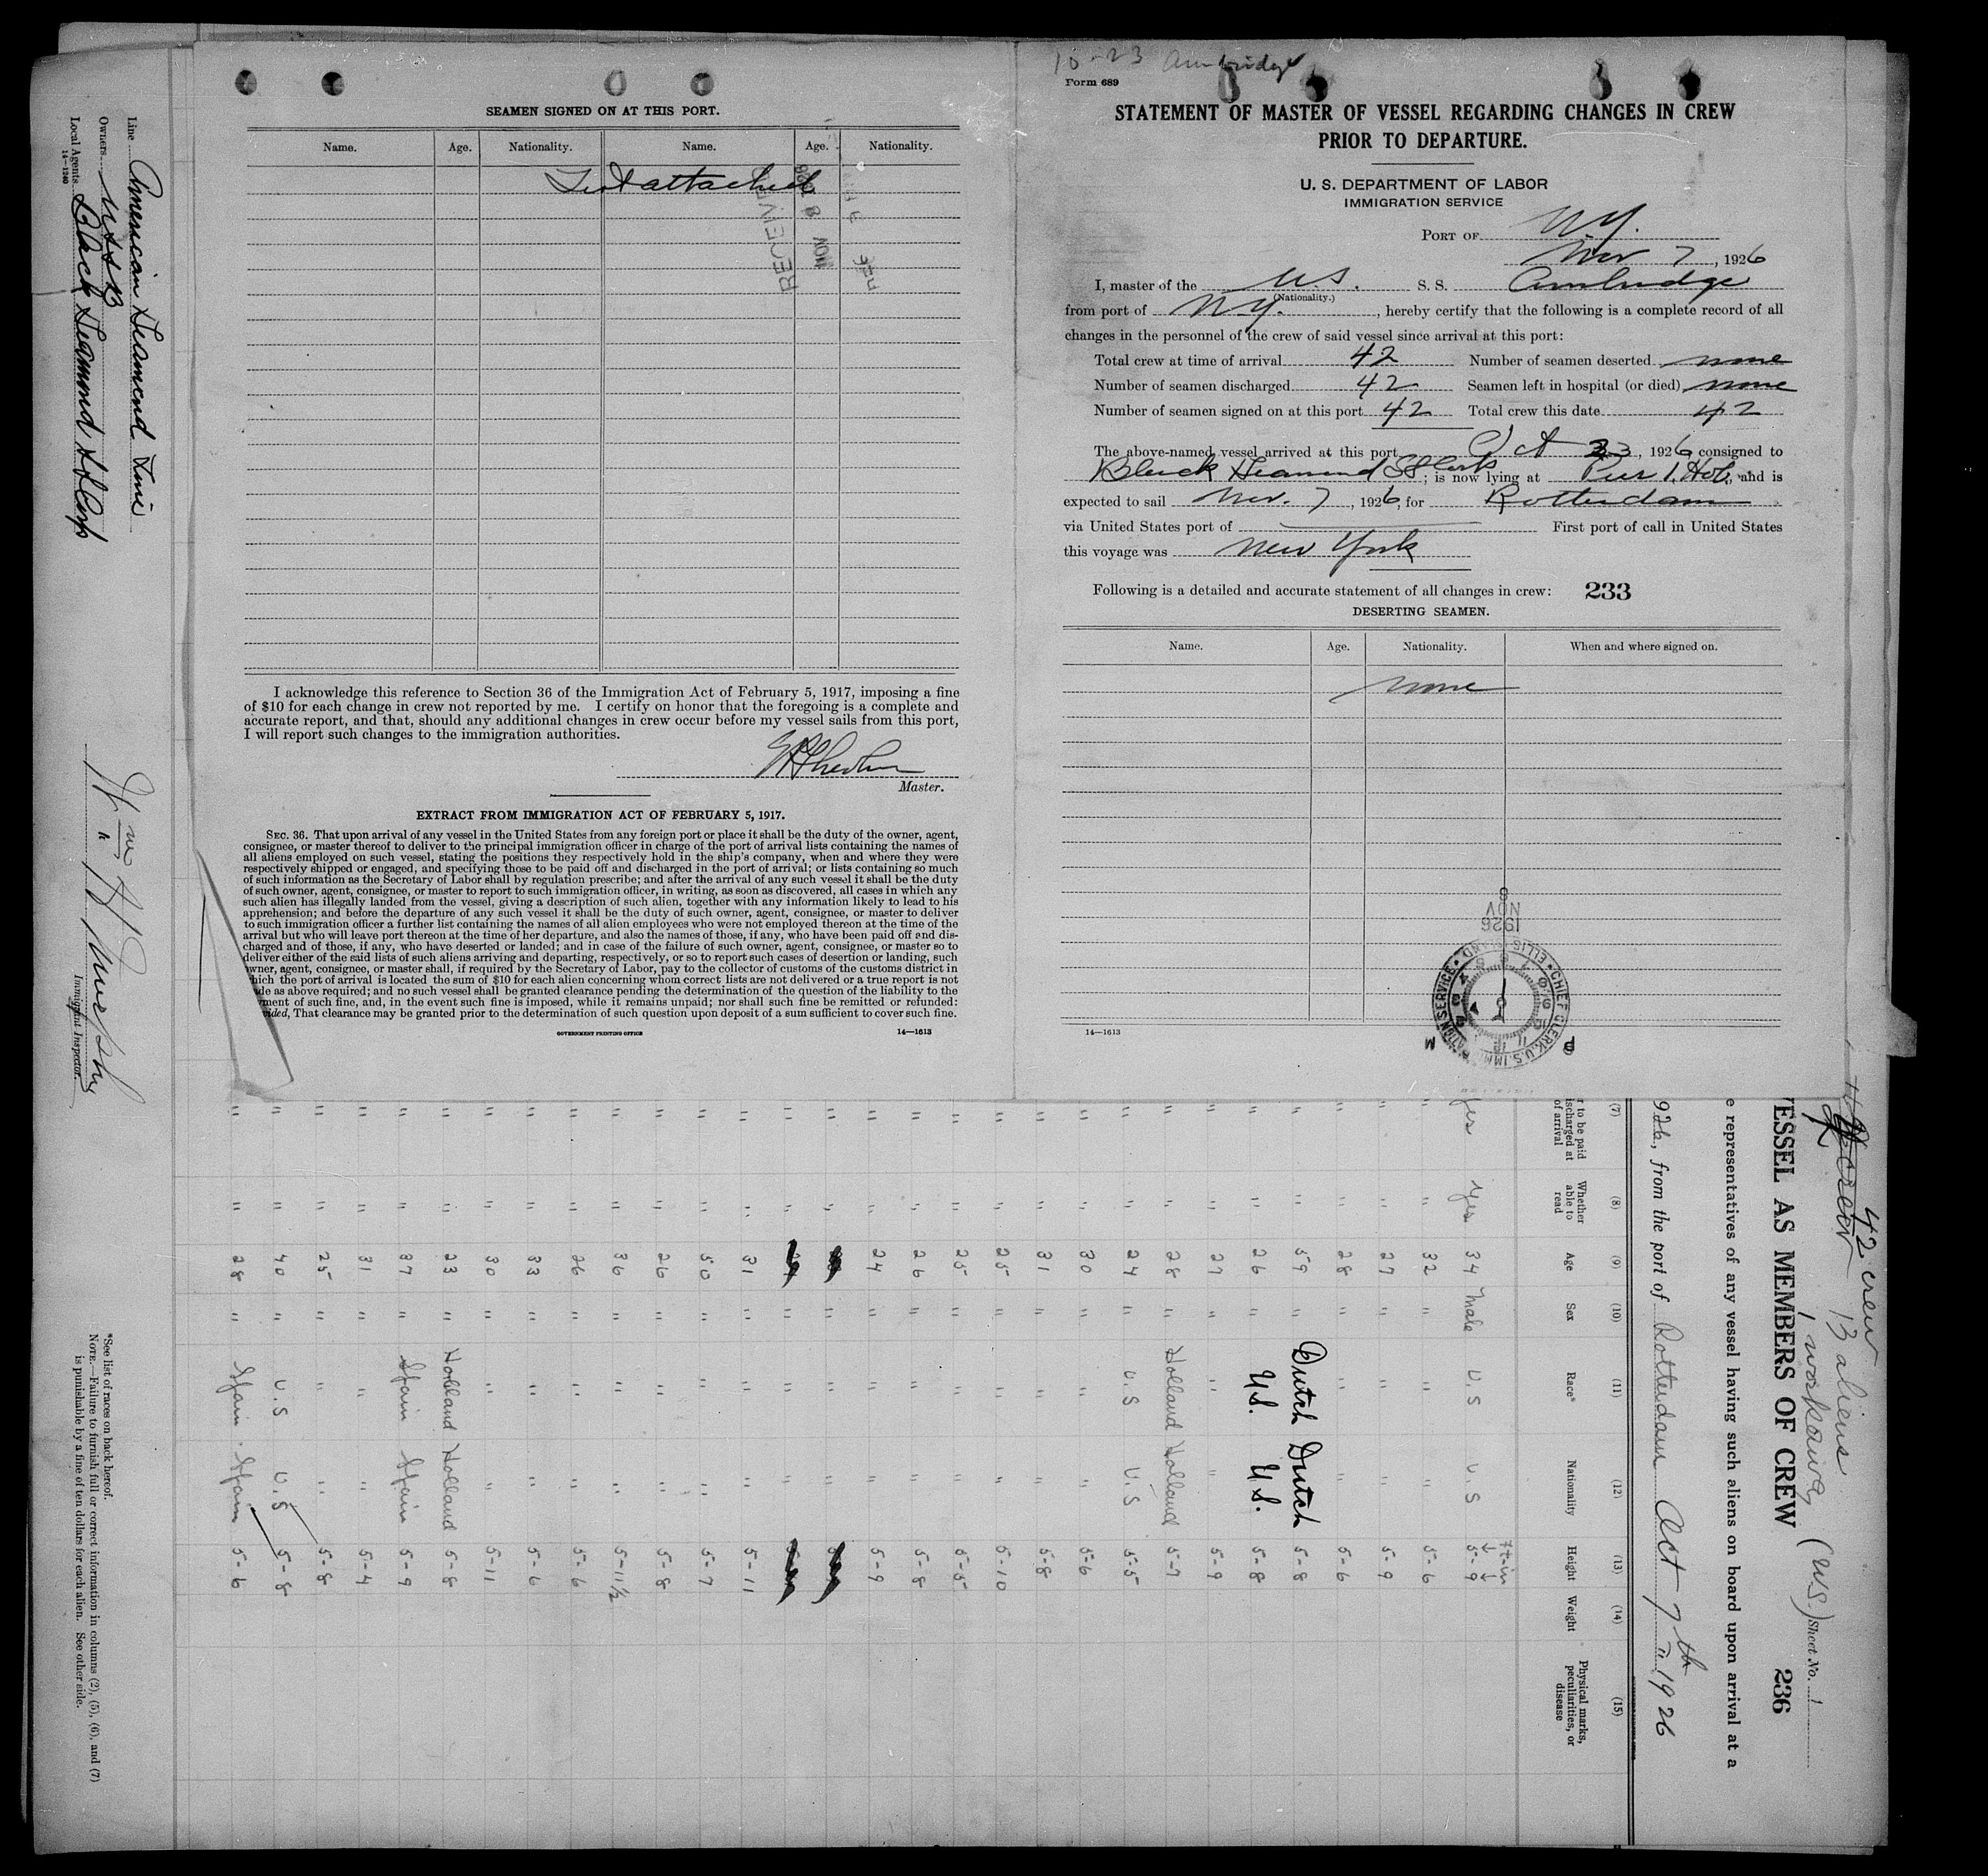 10-23 Ambridge
Form 689
STATEMENT OF MASTER OF VESSEL REGARDING CHANGES IN CREW
PRIOR TO DEPARTURE.
U. S. DEPARTMENT OF LABOR
IMMIGRATION SERVICE
PORT OF N.Y.
Nov 7, 1926
I, master of the U.S. S. S. Ambridge
(Nationality.)
from port of N.Y., hereby certify that the following is a complete record of all
changes in the personnel of the crew of said vessel since arrival at this port:
Total crew at time of arrival 42 Number of seamen deserted none
Number of seamen discharged 42 Seamen left in hospital (or died) none
Number of seamen signed on at this port 42 Total crew this date 42
The above-named vessel arrived at this port Oct 23, 1926 consigned to
Black Diamond SS Corp; is now lying at Pier 1. Hob., and is
expected to sail Nov. 7, 1926, for Rotterdam
via United States port of First port of call in United States
this voyage was New York
Following is a detailed and accurate statement of all changes in crew: 233
DESERTING SEAMEN.
Name. Age. Nationality. When and where signed on.
none
NOV 8 1926
CHIEF CLERK, U.S. IMMIGRATION SERVICE • ELLIS ISLAND •
14—1613
SEAMEN SIGNED ON AT THIS PORT.
Name. Age. Nationality. Name. Age. Nationality.
List attached
RECEIVED
NOV 8 1926
I acknowledge this reference to Section 36 of the Immigration Act of February 5, 1917, imposing a fine
of $10 for each change in crew not reported by me. I certify on honor that the foregoing is a complete and
accurate report, and that, should any additional changes in crew occur before my vessel sails from this port,
I will report such changes to the immigration authorities.
Master.
EXTRACT FROM IMMIGRATION ACT OF FEBRUARY 5, 1917.
SEC. 36. That upon arrival of any vessel in the United States from any foreign port or place it shall be the duty of the owner, agent,
consignee, or master thereof to deliver to the principal immigration officer in charge of the port of arrival lists containing the names of
all aliens employed on such vessel, stating the positions they respectively hold in the ship's company, when and where they were
respectively shipped or engaged, and specifying those to be paid off and discharged in the port of arrival; or lists containing so much
of such information as the Secretary of Labor shall by regulation prescribe; and after the arrival of any such vessel it shall be the duty
of such owner, agent, consignee, or master to report to such immigration officer, in writing, as soon as discovered, all cases in which any
such alien has illegally landed from the vessel, giving a description of such alien, together with any information likely to lead to his
apprehension; and before the departure of any such vessel it shall be the duty of such owner, agent, consignee, or master to deliver
to such immigration officer a further list containing the names of all alien employees who were not employed thereon at the time of the
arrival but who will leave port thereon at the time of her departure, and also the names of those, if any, who have been paid off and dis-
charged and of those, if any, who have deserted or landed; and in case of the failure of such owner, agent, consignee, or master so to
deliver either of the said lists of such aliens arriving and departing, respectively, or so to report such cases of desertion or landing, such
owner, agent, consignee, or master shall, if required by the Secretary of Labor, pay to the collector of customs of the customs district in
which the port of arrival is located the sum of $10 for each alien concerning whom correct lists are not delivered or a true report is not
de as above required; and no such vessel shall be granted clearance pending the determination of the question of the liability to the
ment of such fine, and, in the event such fine is imposed, while it remains unpaid; nor shall such fine be remitted or refunded:
vided, That clearance may be granted prior to the determination of such question upon deposit of a sum sufficient to cover such fine.
GOVERNMENT PRINTING OFFICE 14—1613
42 crew 13 aliens
1 workaway (U.S.) Sheet No. 1
VESSEL AS MEMBERS OF CREW 236
e representatives of any vessel having such aliens on board upon arrival at a
926, from the port of Rotterdam Oct 7th 1926
(7) (8) (9) (10) (11) (12) (13) (14) (15)
r to be paid discharged at of arrival Whether able to read Age Sex Race* Nationality Height Weight Physical marks, peculiarities, or disease
ft-in
yes yes 34 male U.S U.S 5-9
" " 32 " " " 5-6
" " 27 " " " 5-9
" " 28 " " " 5-6
" " 59 " Dutch Dutch 5-8
" " 26 " U.S. U.S. 5-8
" " 27 " " " 5-9
" " 28 " Holland Holland 5-7
" " 24 " U.S U.S 5-5
" " 30 " " " 5-6
" " 31 " " " 5-8
" " 25 " " " 5-10
" " 25 " " " 5-5
" " 26 " " " 5-8
" " 24 " " " 5-9
" " " " "
" " " " "
" " 31 " " " 5-11
" " 50 " " " 5-7
" " 26 " " " 5-8
" " 36 " " " 5-11½
" " 26 " " " 5-6
" " 33 " " " 5-6
" " 30 " " " 5-11
" " 23 " Holland Holland 5-8
" " 37 " Spain Spain 5-9
" " 31 " " " 5-4
" " 25 " " " 5-8
" " 40 " U.S U.S 5-8
" " 28 " Spain Spain 5-6
Line American Diamond Line
Owners U S S B
Local Agents Black Diamond SS Corp
14—1240
Immigrant Inspector.
*See list of races on back hereof.
NOTE.—Failure to furnish full or correct information in columns (2), (5), (6), and (7)
is punishable by a fine of ten dollars for each alien. See other side.